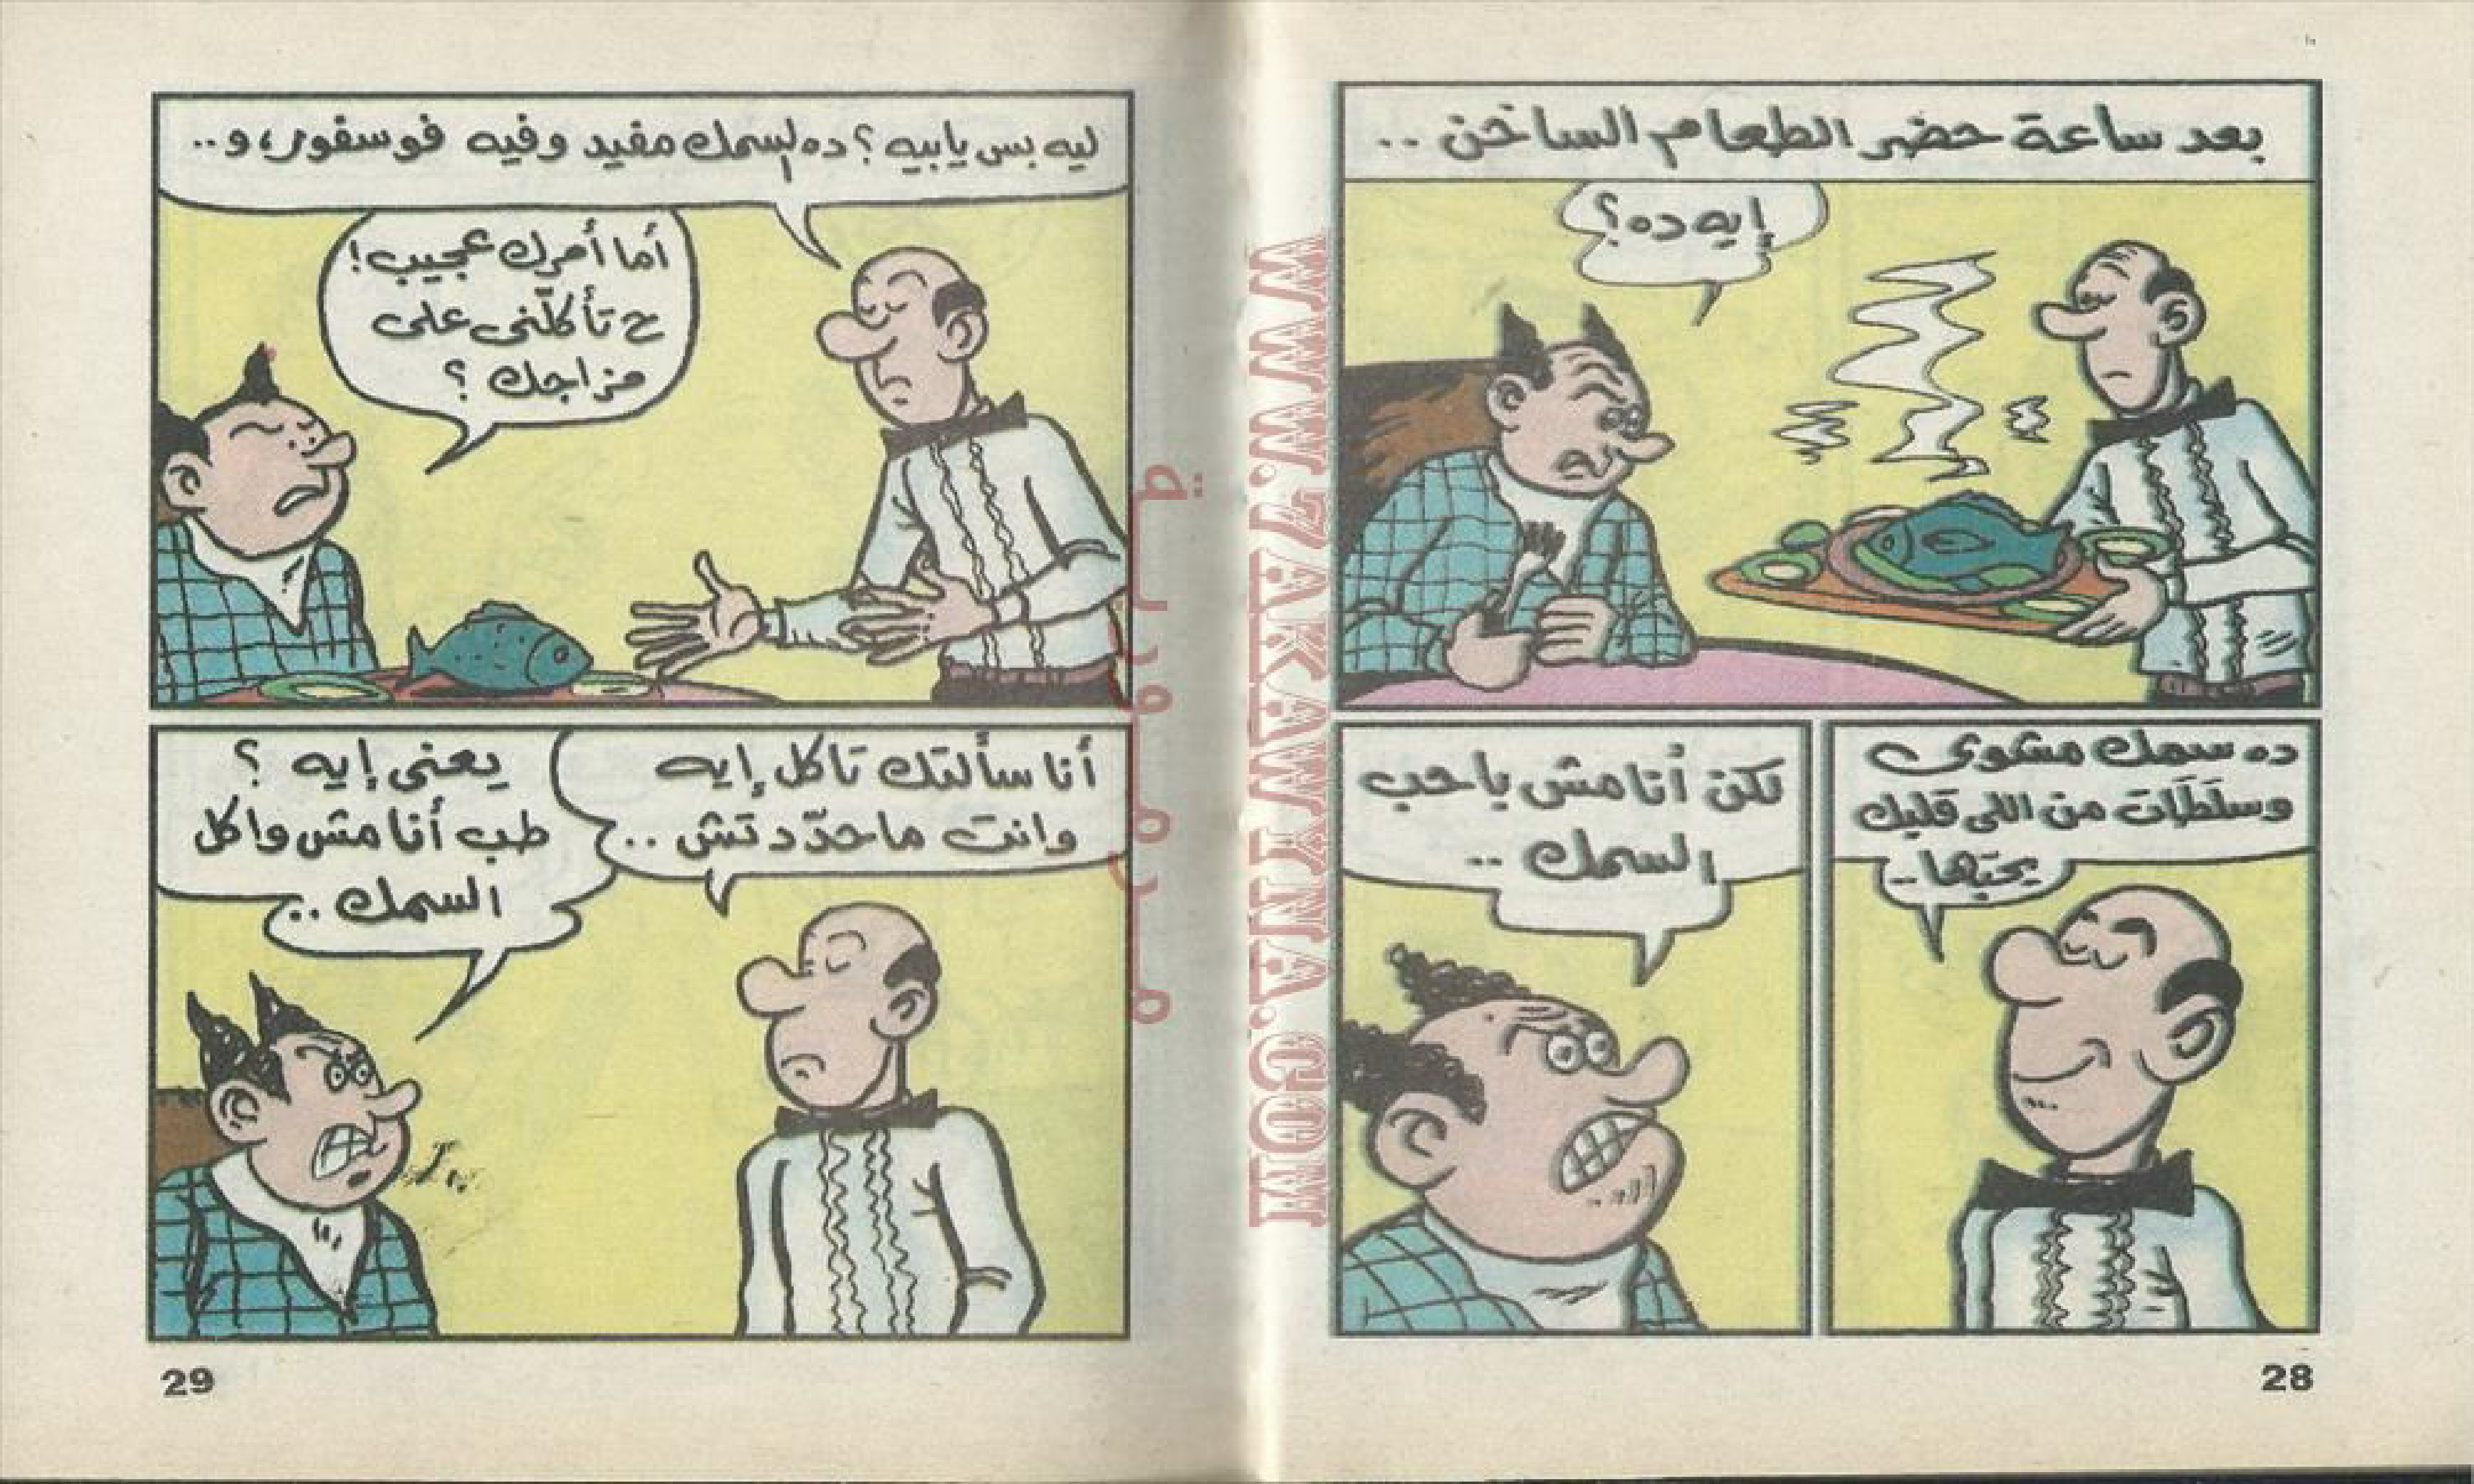 بعد ساعة حضر الطعام الساخن ..
إيه ده؟
ده سمك مشوى
وسلطات من اللى قلبك
يحبّها ..
لكن أنا مش باحب
السمك ..
28
ليه بس يا بيه ؟ ده السمك مفيد وفيه فوسفور، و ..
أما أمرك عجيب!
ح تأكلّنى على
مزاجك ؟
أنا سألتك تاكل إيه
وانت ما حدّدتش ..
يعنى إيه ؟
طب أنا مش واكل
السمك ..
29
WWW.ZAKAWTNA.COM